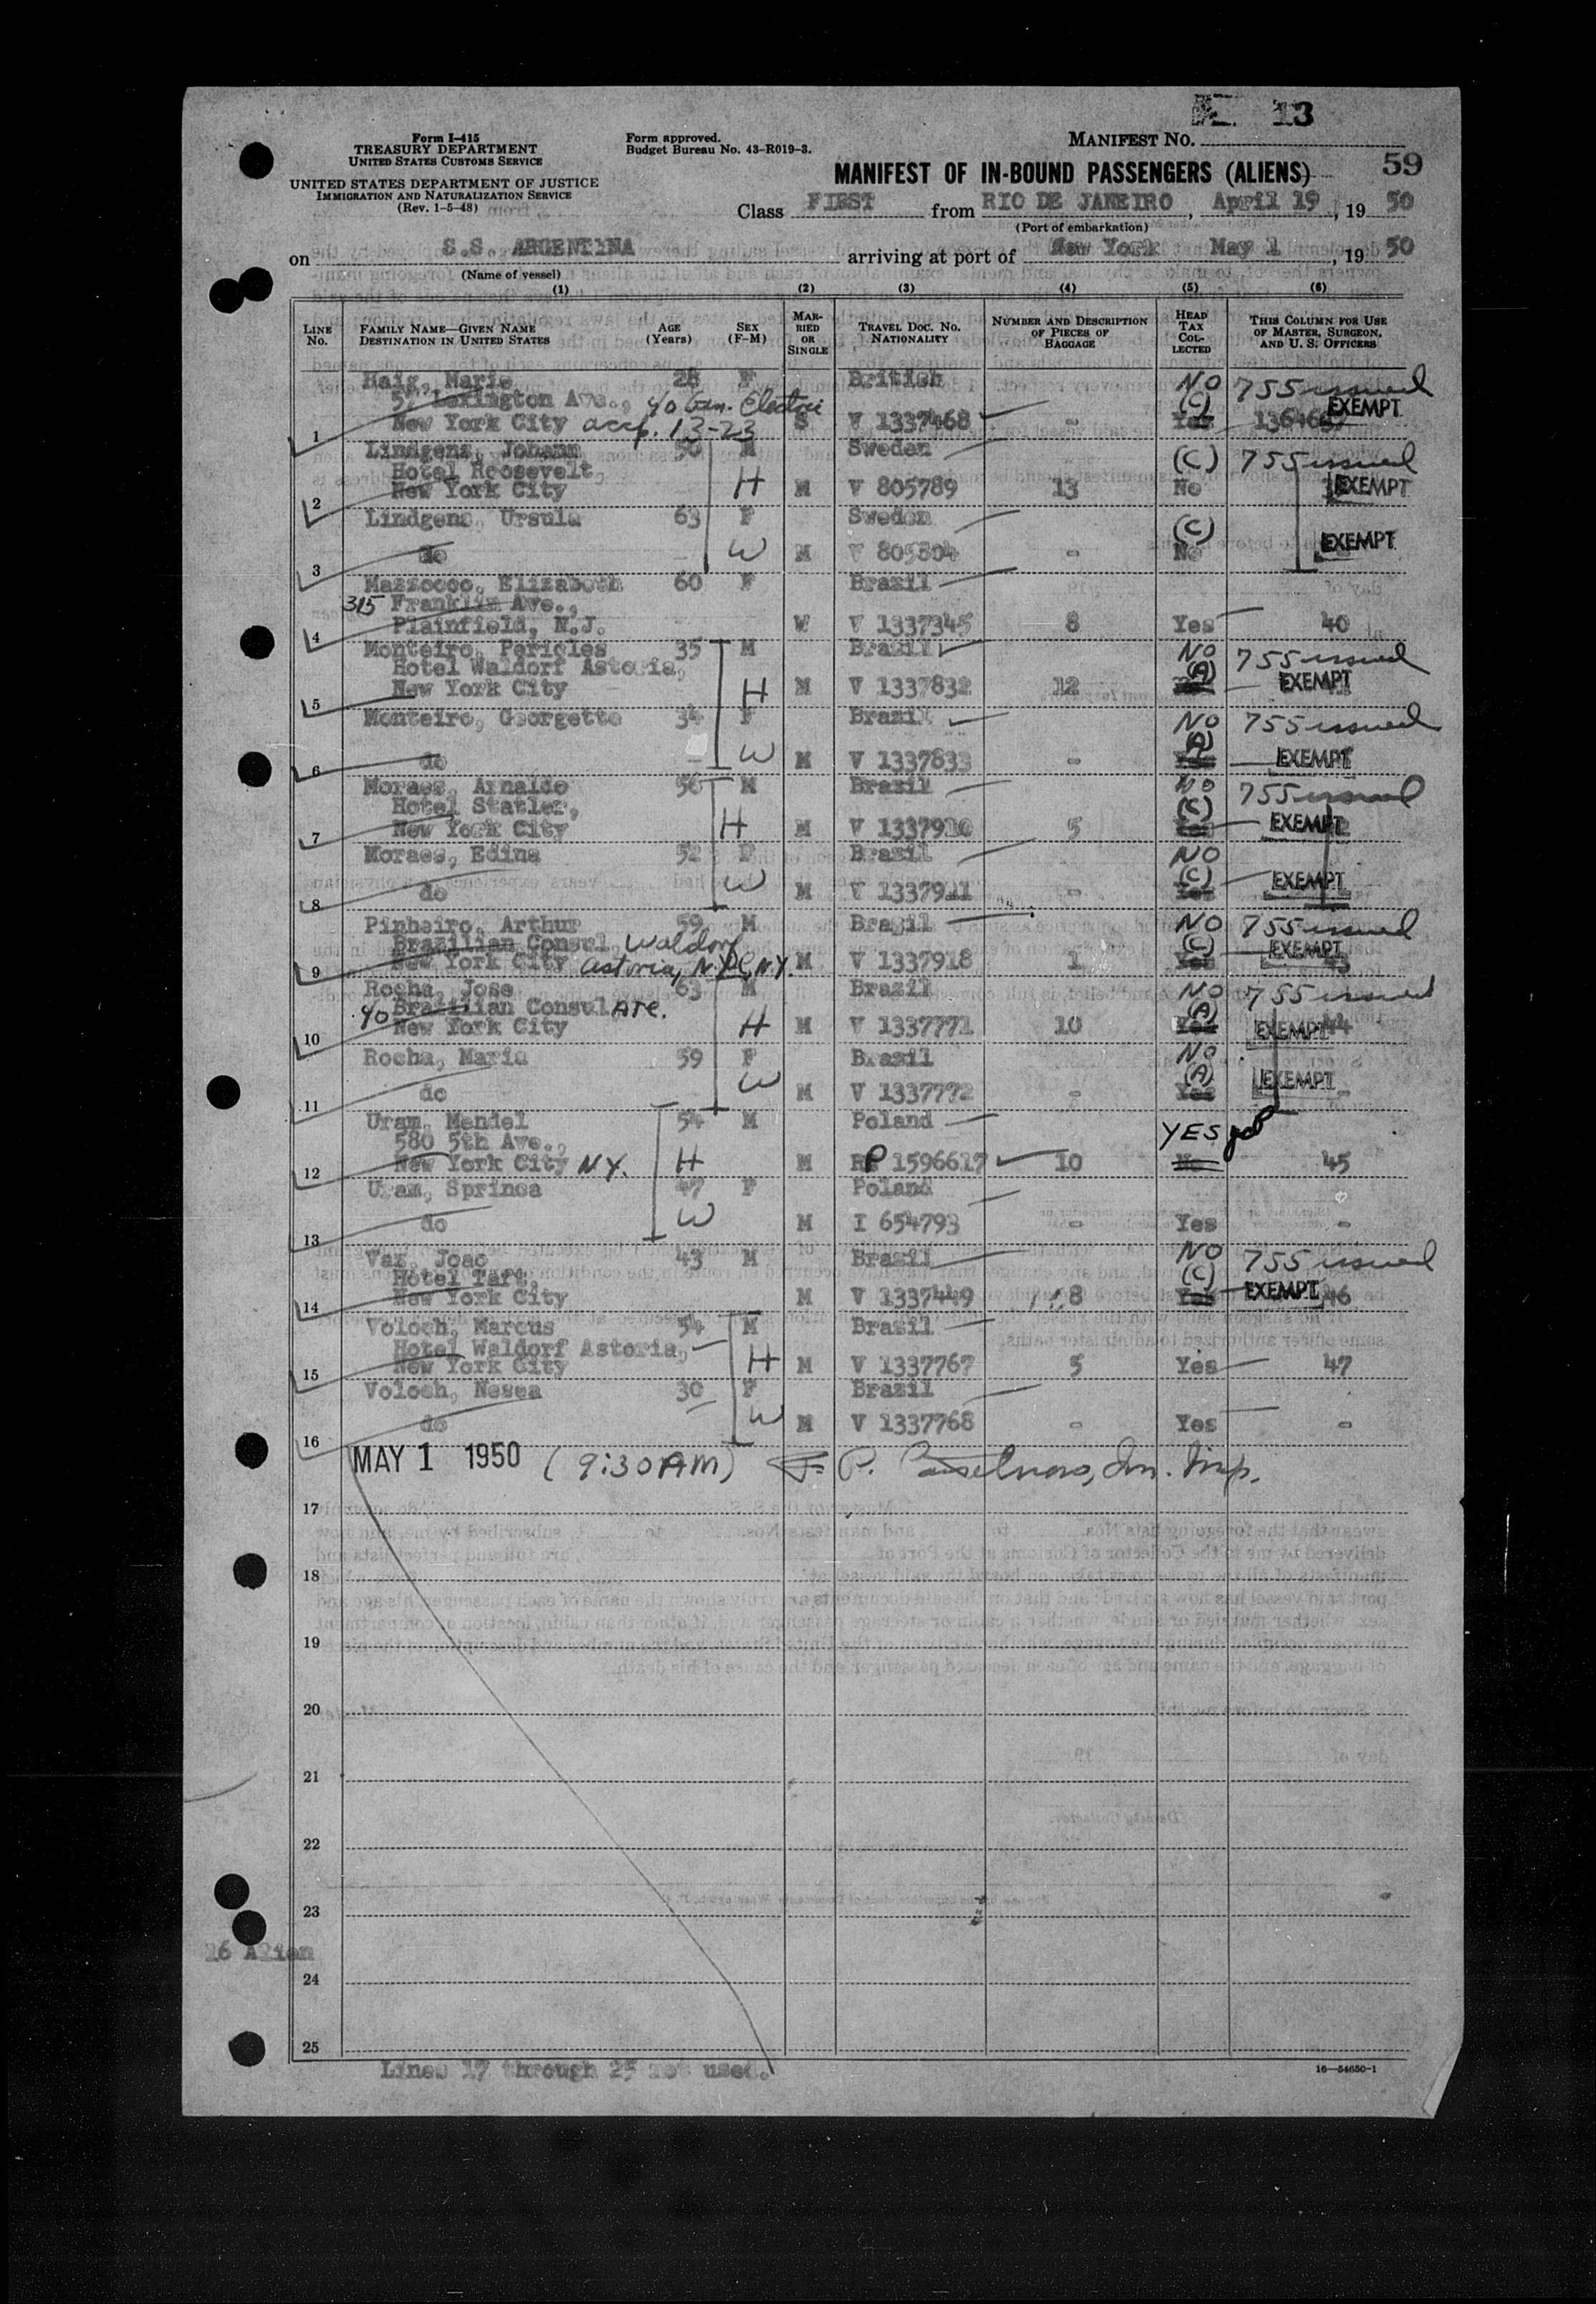 13
Form I-415
TREASURY DEPARTMENT
UNITED STATES CUSTOMS SERVICE
UNITED STATES DEPARTMENT OF JUSTICE
IMMIGRATION AND NATURALIZATION SERVICE
(Rev. 1-5-48)
Form approved.
Budget Bureau No. 43-R019-3.
MANIFEST NO.
MANIFEST OF IN-BOUND PASSENGERS (ALIENS) 59
Class FIRST from RIO DE JANEIRO, April 19, 19 50
(Port of embarkation)
on S.S. ARGENTINA arriving at port of New York May 1, 19 50
(Name of vessel)
(1) (2) (3) (4) (5) (6)
LINE NO. FAMILY NAME—GIVEN NAME DESTINATION IN UNITED STATES AGE (Years) SEX (F-M) MARRIED OR SINGLE TRAVEL DOC. NO. NATIONALITY NUMBER AND DESCRIPTION OF PIECES OF BAGGAGE HEAD TAX COLLECTED THIS COLUMN FOR USE OF MASTER, SURGEON, AND U. S. OFFICERS
Haig, Marie 28 F British NO 755 issued
57 Lexington Ave., c/o Gen. Electric (C) EXEMPT
1 New York City acc. 13-23 S V 1337468 - Yes
Lindgens, Johann 50 M Sweden (C) 755 issued
Hotel Roosevelt,
2 New York City H M V 805789 13 No EXEMPT
Lindgens, Ursula 63 F Sweden (C)
3 do W M V 805804 - No EXEMPT
Mazzocco, Elizabeth 60 F Brazil
315 Franklin Ave.,
4 Plainfield, N.J. W V 1337345 8 Yes 40
Monteiro, Pericles 35 M Brazil NO 755 issued
Hotel Waldorf Astoria, (A)
5 New York City H M V 1337832 12 EXEMPT
Monteiro, Georgette 34 F Brazil NO 755 issued
(A)
6 do W M V 1337833 - Yes EXEMPT
Moraes, Arnaldo 56 M Brazil NO 755 issued
Hotel Statler, (C)
7 New York City H M V 1337920 5 Yes EXEMPT
Moraes, Edina 52 F Brazil NO
(C)
8 do W M V 1337921 - Yes EXEMPT
Pinheiro, Arthur 59 M Brazil NO 755 issued
Brazilian Consul Waldorf (C) EXEMPT
9 New York City Astoria, N.Y.C, N.Y. M V 1337918 1 Yes 43
Rocha, Jose 63 M Brazil NO 755 issued
c/o Brazilian ConsulATE. (A)
10 New York City H M V 1337771 10 Yes EXEMPT 44
Rocha, Maria 59 F Brazil NO
(A)
11 do W M V 1337772 - Yes EXEMPT -
Uram, Mendel 54 M Poland
580 5th Ave., YES
12 New York City N.Y. H M RP 1596617 10 No 45
Uram, Sprinca 47 F Poland
13 do W M I 654793 - Yes -
Vaz, Joao 43 M Brazil NO 755 issued
Hotel Taft, (C)
14 New York City M V 1337449 8 Yes EXEMPT 46
Voloch, Marcus 54 M Brazil
Hotel Waldorf Astoria,
15 New York City H M V 1337767 5 Yes 47
Voloch, Nesea 30 F Brazil
16 do W M V 1337768 - Yes -
MAY 1 1950 (9:30 AM) F. P. Im. Insp.
17
18
19
20
21
22
23
16 Alien
24
25
Lines 17 through 25 not used.
16—54650-1